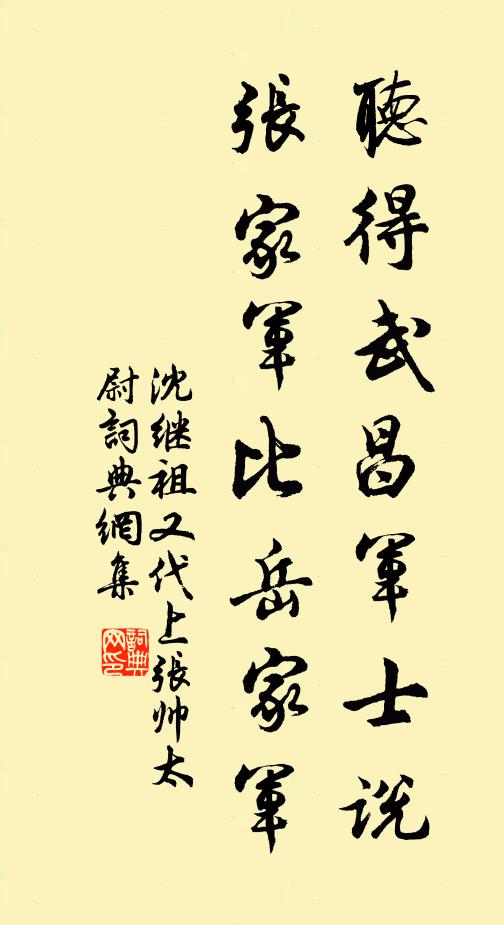 聽得武昌軍士說
張家軍比岳家軍
沈继祖又代上張帅太
尉詞典網集
詞典
网印